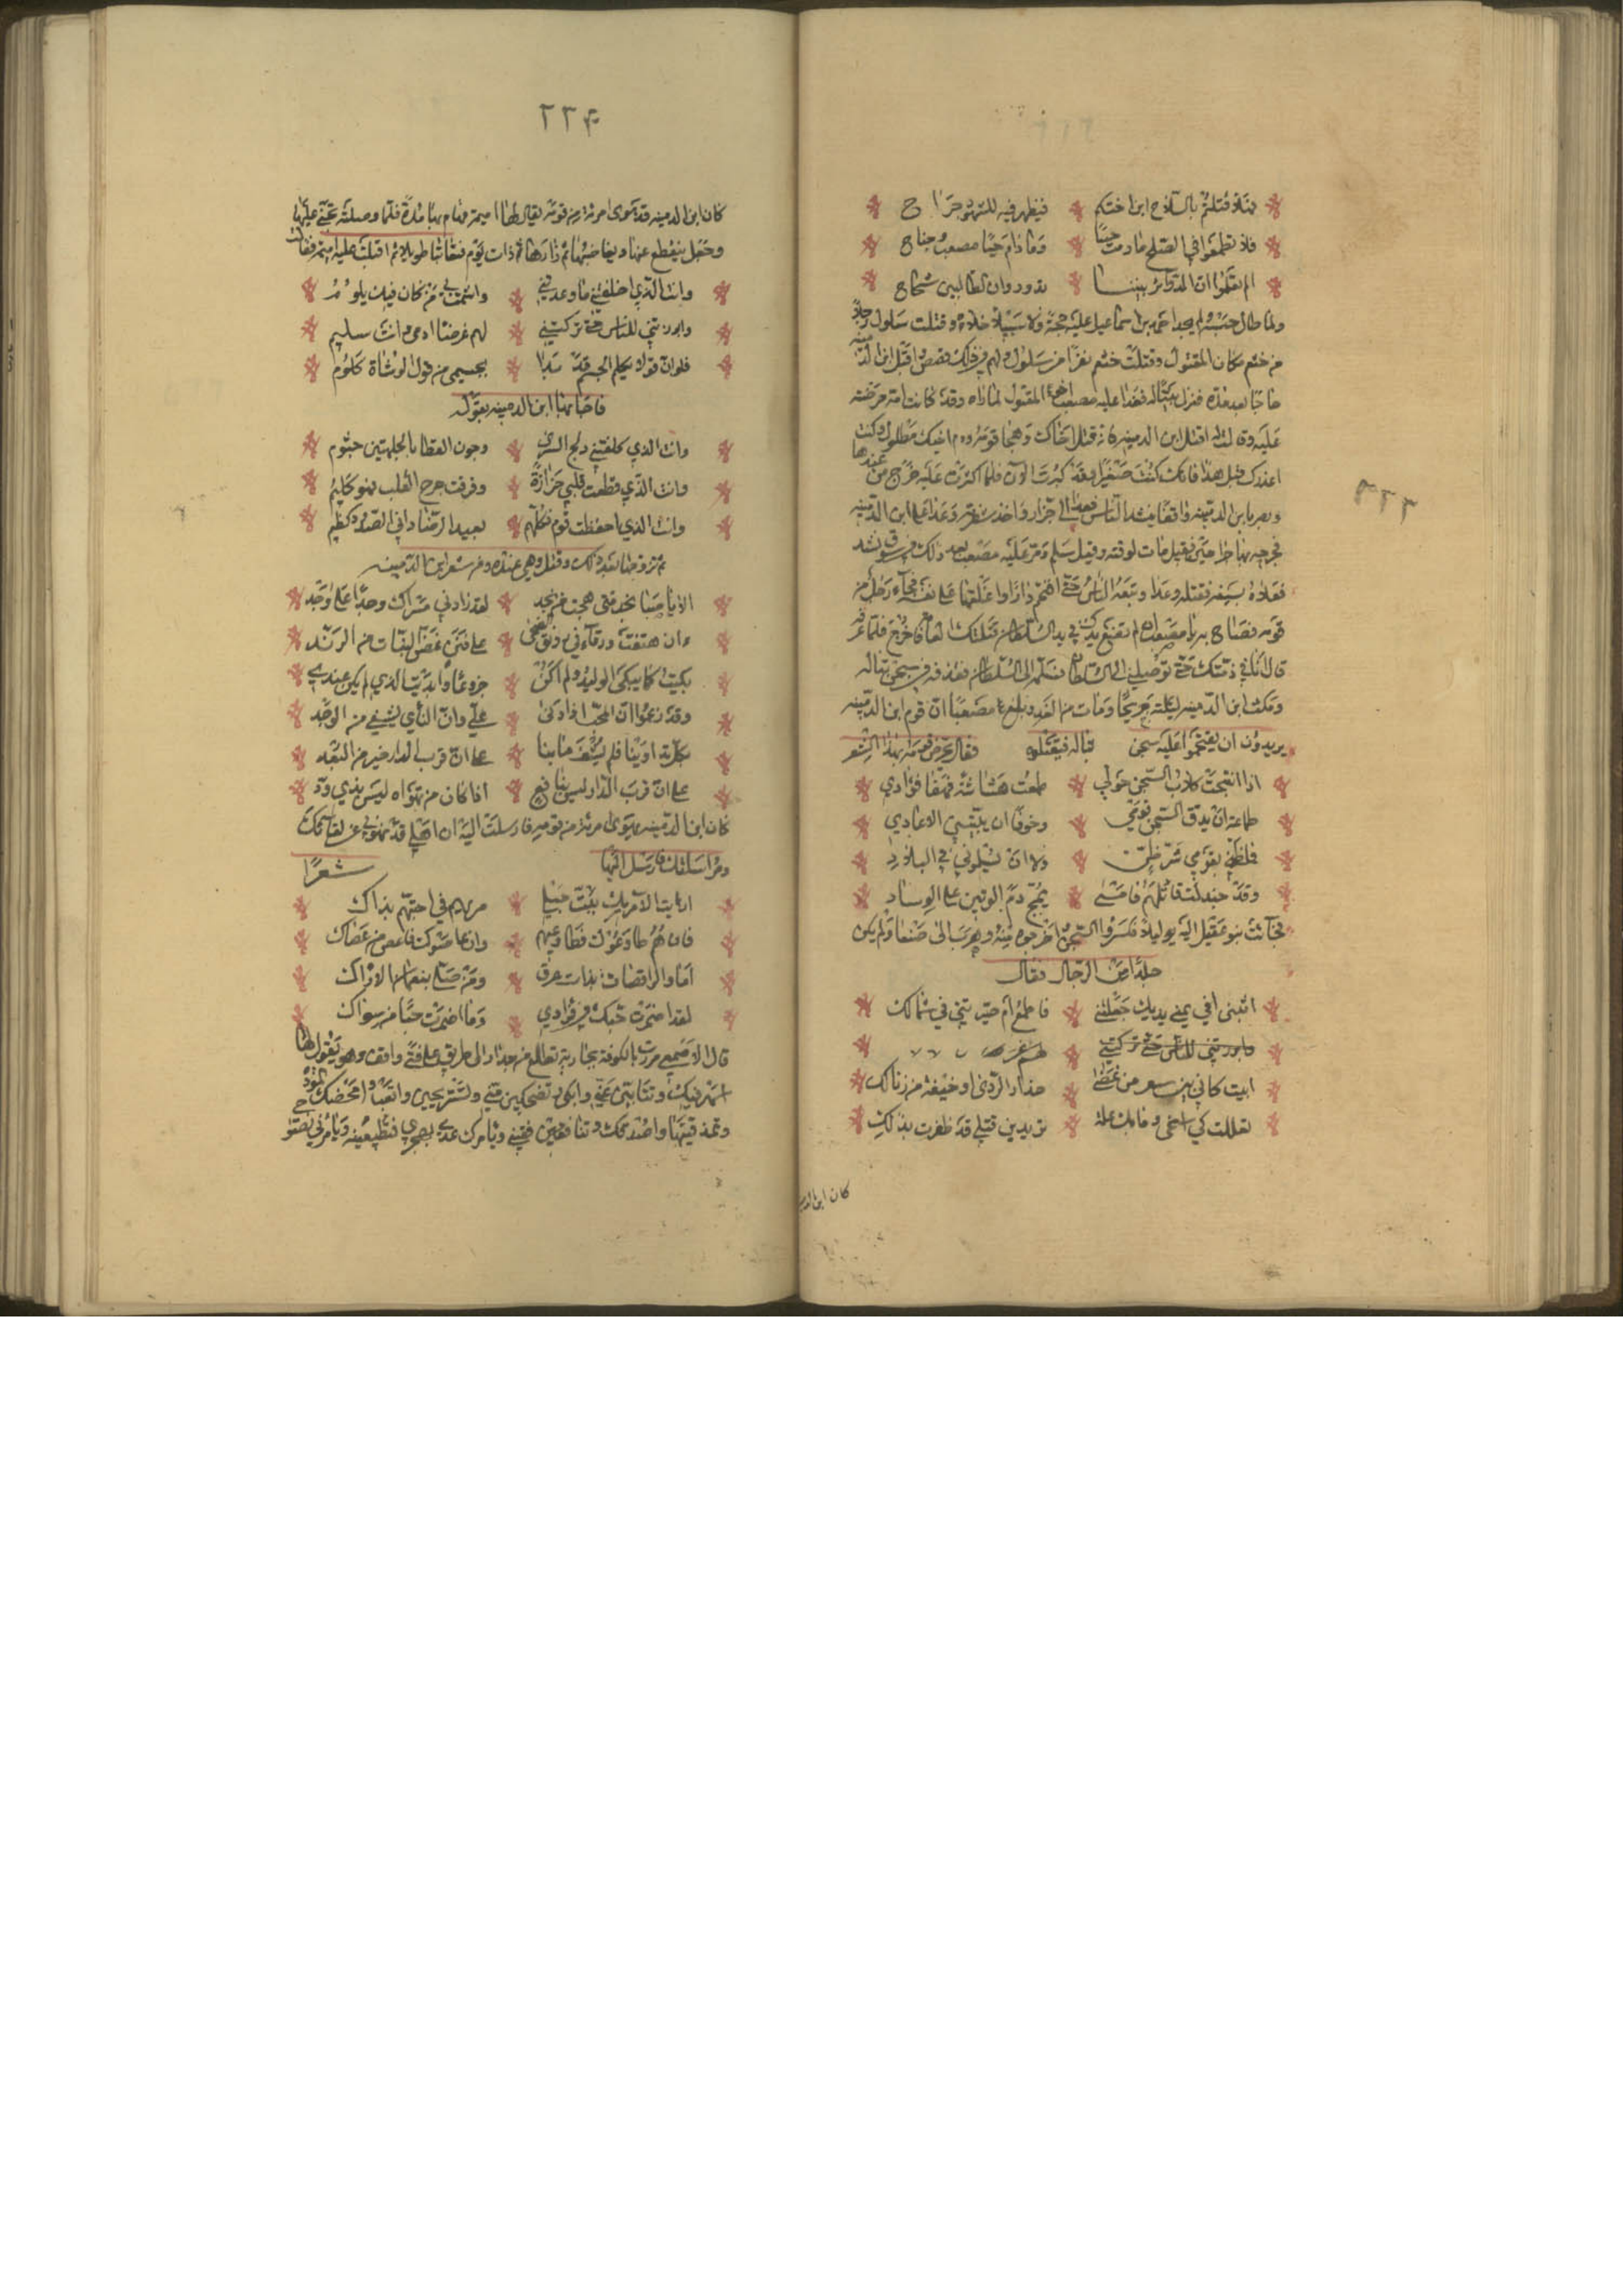 هلا قتلتم بالسلاح ابن اختكم فيظهر فيه للشهود جراح
فلا تطمعوا في الصلح ما دمت حيا وما دام حيا مصعب وجناح
الم تعلموا ان الدوائر بيننا تدور وان الطالبين شحاح
ولما طال حبسه لم يجد احمد بن اسماعيل عليه حجة ولا سبيلا خلاه وقتلت سلول رجلا
من خثعم مكان المقتول وقتلت خثعم نفرا من سلول ولهم في ذلك قصص اقبل ابن الدمينه
حاجا بعد مدة فنزل بتبالة فغدا عليه مصعب اخو المقتول لما راه وقد كانت امه حرضته
عليه وقالت له اقتل ابن الدمينه فانه قتل اخاك وهجا قومك ودم اخيك مطلول وكنت
اعذرك قبل هذا فانك كنت صغيرا وقد كبرت الآن فلما اكثرت عليه خرج من عندها
وبصر بابن الدمينه واقفا ينشد الناس فعدا الى جزار واخذ شفرته وعدا على ابن الدمينه
فجرحه بها جراحتين فقيل مات لوقته وقيل سلم ومر عليه مصعب بعد ذلك في سوق ينشد
فعلاه بسيفه فقتله وعدا وتبعه الناس حتى اقتحم دارا واغلقها على نفسه فجاء رجل من
قومه فصاح به يا مصعب ان لم تضع يدك في يد السلطان قتلتك العامة فاخرج فلما عرفه
قال انا في ذمتك حتى توصلني الى السلطان فسلمه الى السلطان فقذفه في سجن تباله
ومكث ابن الدمينه ليلته جريحا ومات من الغد وبلغ مصعبا ان قوم ابن الدمينه
يريدون ان يقتحموا عليه سجن تباله فيقتلوه فقال يحرض قومه بهذا الشعر
اذا انبحت كلاب السجن حولي طمعت هشاشة وهفا فؤادي
طماعة ان يدق السجن قومي وخوفا ان يبيتني الاعادي
فما ظني بقومي شر ظن ولا ان يسلموني في البلاد
وقد جندلت قاتلهم فامسى يمج دم الوتين على الوساد
فجآءت بنو عقيل اليه ليلا فكسروا السجن واخرجوه منه وهرب الى صنعا ولم يكن
فقال
ابيني افي يمنى يديك جعلتني فافرح ام صيرتني في شمالك
وابرزتني للناس حتى تركتني
ابيت كاني بين من حذار الردى او خيفة من زيالك
تعاللت كي اشجى وما بك علة تريدين قتلي قد ظفرت بذلك
كان ابن الدمينه
٢٢٣
٢٢٤
كان ابن الدمينه قد هوى امرئة من قومه يقال لها اميمة فهام بها مدة فلما وصلته تجنى عليها
وجعل ينقطع عنها ويغاضبها ثم زارها ذات يوم فتعاتبا طويلا ثم اقبلت عليه اميمة فقالت
وانت الذي اخلفتني ما وعدتني واشمت بي من كان فيك يلوم
وابرزتني للناس حتى تركتني لهم غرضا ارمى وانت سليم
فلو ان قولا يكلم الجسم قد بدا بجسمي من قول الوشاة كلوم
فاجابها ابن الدمينه بقوله
وانت الذي كلفتني دلج السرى وجون القطا بالجلهتين جثوم
وانت الذي قطعت قلبي حزازة وفرقت جرح القلب فهو كليم
وانت الذي احفظت قوم فكلهم بعيد الرضا داني الصدود كظيم
ثم تزوجها بعد ذلك وقتل وهي عنده ومن شعر ابن الدمينه
الا يا صبا نجد متى هجت من نجد لقد زادني مسراك وجدا على وجد
ءان هتفت ورقآء في رونق الضحى على فنن غض النبات من الرند
بكيت كما يبكي الوليد ولم اكن جزوعا وابديت الذي لم يكن عندي
وقد زعموا ان المحب اذا دنى يمل وان النأي يشفي من الوجد
بكل تداوينا فلم يشف ما بنا على ان قرب الدار خير من البعد
على ان قرب الدار ليس بنافع اذا كان من تهواه ليس بذي ود
كان ابن الدمينه يهوى امرئة من قومه فارسلت اليه ان اهلي قد نهوني عن لقائك
ومراسلتك فارسل اليها شعرا
اريت الآمريك بقطع حبلي مريهم في احبتهم بذاك
فان هم طاوعوك فطاوعيهم وان عاصوك فاعصي من عصاك
اما والراقصات بذات عرق ومن صلى بنعمان الاراك
لقد اضمرت حبك في فؤادي وما اضمرت حبا من سواك
قال الاصمعي مررت بالكوفة بجارية تطلع من جدار الى الطريق على فتى واقف وهو يقول لها
اسهر فيك وتنامين عني وابكي وتضحكين مني وتستريحين واتعب وامحضك المودة
وتمذقينها واصدقك وتنافقين فيني ويامرك عدوي بهجري فتطيعينه ويامرني نصحي